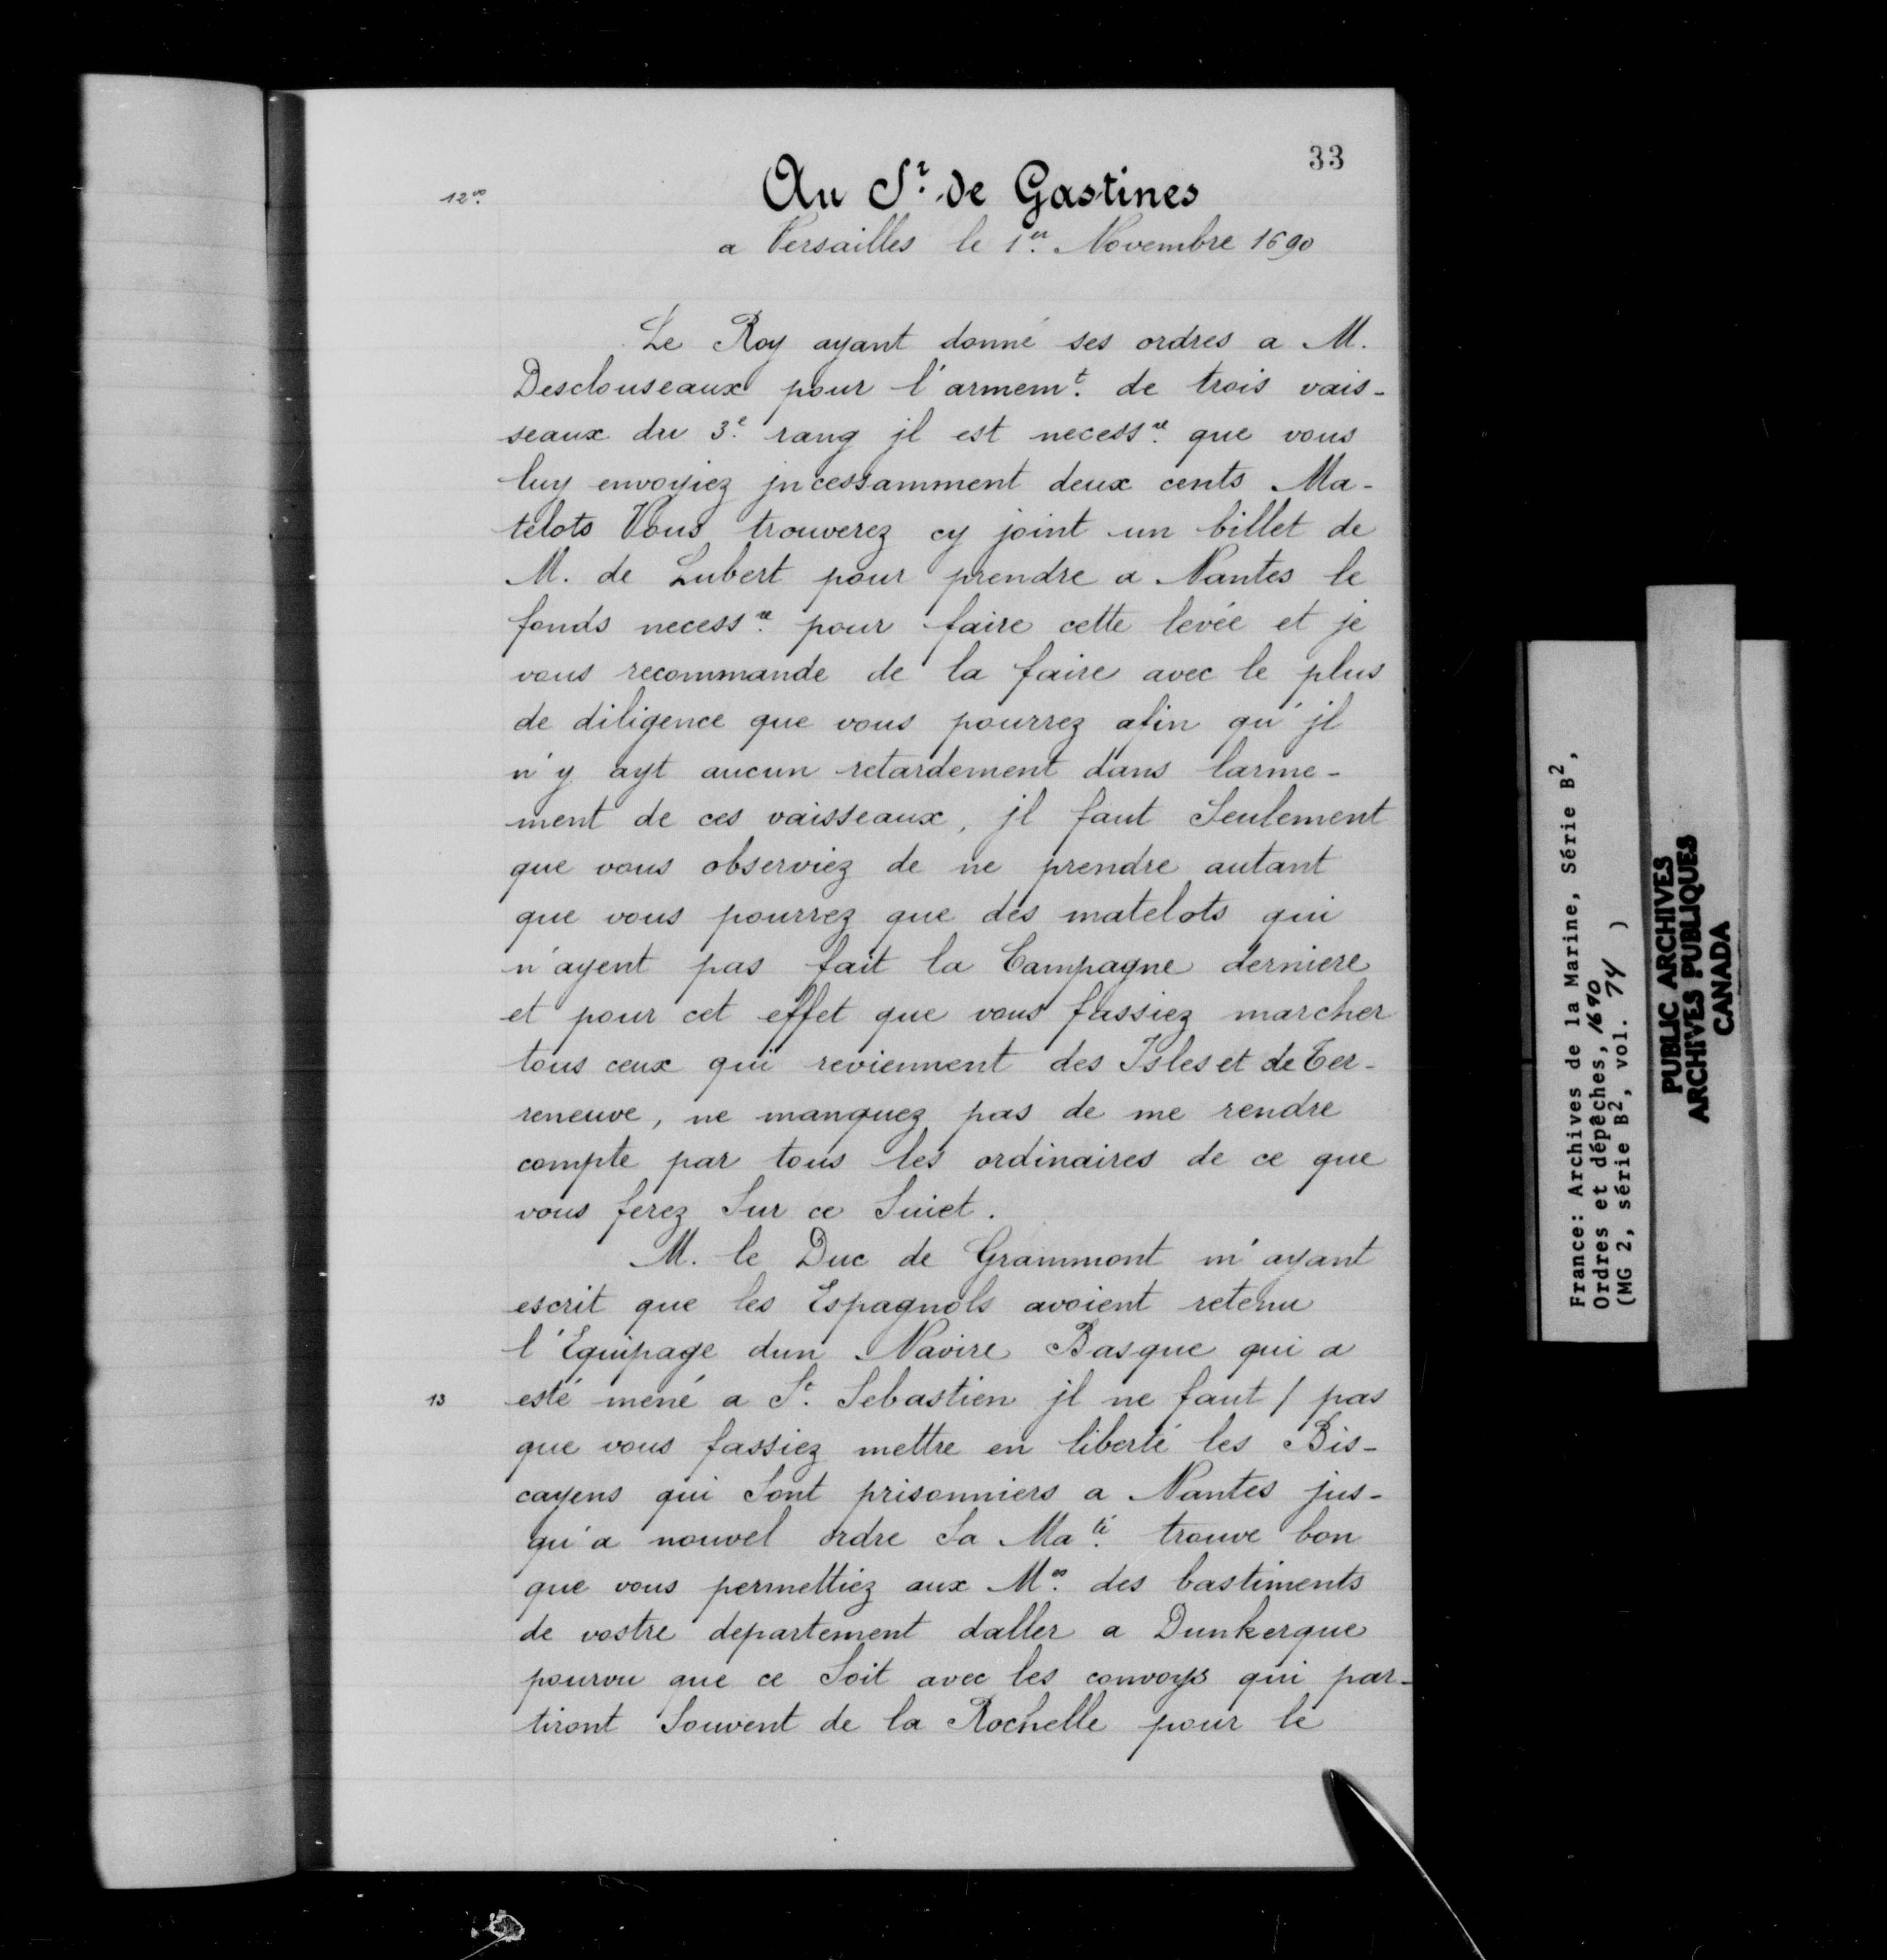 33
12vo.
Au Sr. de Gastines
a Versailles le 1er. Novembre 1690
Le Roy ayant donné ses ordres a M.
Desclouseaux pour l'armemt. de trois vais-
seaux du 3e. rang jl est necessre. que vous
luy envoyiez jncessamment deux cents Ma-
telots Vous trouverez cy joint un billet de
M. de Lubert pour prendre a Nantes le
fonds necessre. pour faire cette levée et je
vous recommande de la faire avec le plus
de diligence que vous pourrez afin qu'jl
n'y ayt aucun retardement dans larme-
ment de ces vaisseaux, jl faut Seulement
que vous observiez de ne prendre autant
que vous pourrez que des matelots qui
n'ayent pas fait la Campagne derniere
et pour cet effet que vous fassiez marcher
tous ceux qui reviennent des Isles et de Ter-
reneuve, ne manquez pas de me rendre
compte par tous les ordinaires de ce que
vous ferez Sur ce Suiet.
M. le Duc de Grammont m'ayant
escrit que les Espagnols avoient retenu
l'Equipage dun Navire Basque qui a
13 esté mené a St. Sebastien jl ne faut / pas
que vous fassiez mettre en liberté les Bis-
cayens qui Sont prisonniers a Nantes jus-
qu'a nouvel ordre Sa Maté. trouve bon
que vous permettiez aux Mes. des bastiments
de vostre departement daller a Dunkerque
pourvu que ce Soit avec les convoys qui par-
tiront Souvent de la Rochelle pour le
France: Archives de la Marine, Série B2,
Ordres et dépêches, 1690
(MG 2, série B2, vol. 74 )
PUBLIC ARCHIVES
ARCHIVES PUBLIQUES
CANADA